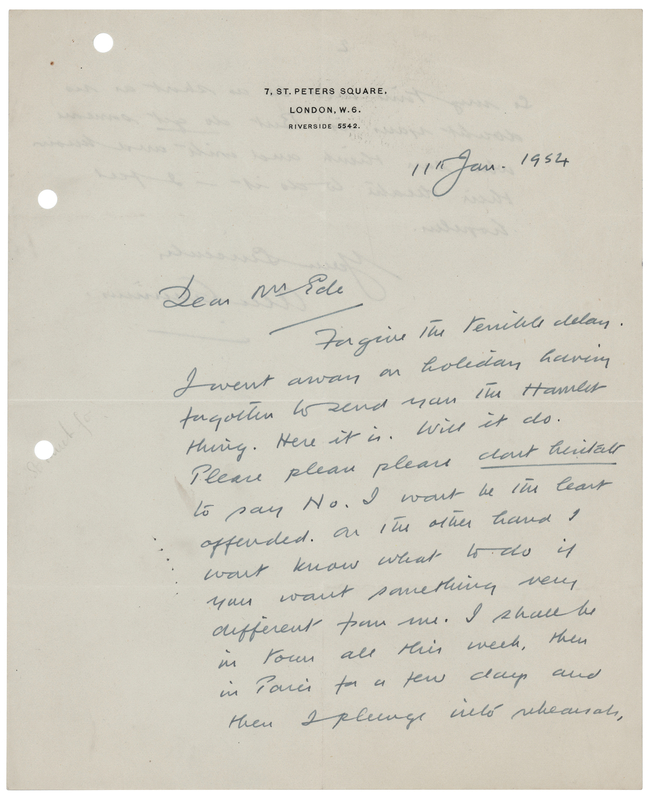 7, ST. PETERS SQUARE.
LONDON, W.6.
RIVERSIDE 5542.
11th Jan. 1954
Dear Mr Ede
Forgive the terrible delay.
I went away on holiday having
forgotten to send you the Hamlet
thing. Here it is. Will it do.
Please please please dont hesitate
to say No. I wont be the least
offended. On the other hand I
wont know what to do if
you want something very
different from me. I shall be
in town all this week, then
in Paris for a few days and
then I plunge into rehearsals,